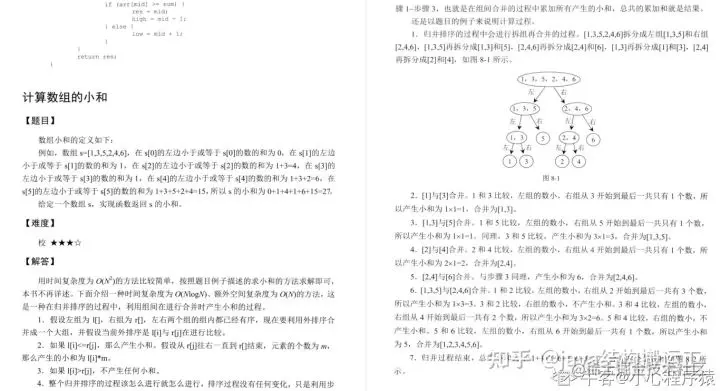 if (arr[mid] >= sum) {
res = mid;
high = mid - 1;
} else {
low = mid + 1;
}
}
return res;
}
计算数组的小和
【题目】
数组小和的定义如下：
例如，数组 s=[1,3,5,2,4,6]，在 s[0]的左边小于或等于 s[0]的数的和为 0，在 s[1]的左边
小于或等于 s[1]的数的和为 1，在 s[2]的左边小于或等于 s[2]的数的和为 1+3=4，在 s[3]的
左边小于或等于 s[3]的数的和为 1，在 s[4]的左边小于或等于 s[4]的数的和为 1+3+2=6，在
s[5]的左边小于或等于 s[5]的数的和为 1+3+5+2+4=15，所以 s 的小和为 0+1+4+1+6+15=27。
给定一个数组 s，实现函数返回 s 的小和。
【难度】
校 ★★★☆
【解答】
用时间复杂度为 O(N²)的方法比较简单，按照题目例子描述的求小和的方法求解即可，
本书不再详述。下面介绍一种时间复杂度为 O(NlogN)、额外空间复杂度为 O(N)的方法，这
是一种在归并排序的过程中，利用组间在进行合并时产生小和的过程。
1．假设左组为 l[]，右组为 r[]，左右两个组的组内都已经有序，现在要利用外排序合
并成一个大组，并假设当前外排序是 l[i]与 r[j]在进行比较。
2．如果 l[i]<=r[j]，那么产生小和。假设从 r[j]往右一直到 r[]结束，元素的个数为 m，
那么产生的小和为 l[i]*m。
3．如果 l[i]>r[j]，不产生任何小和。
4．整个归并排序的过程该怎么进行就怎么进行，排序过程没有任何变化，只是利用步
骤 1~步骤 3，也就是在组间合并的过程中累加所有产生的小和，总共的累加和就是结果。
还是以题目的例子来说明计算过程。
1．归并排序的过程中会进行拆组再合并的过程。[1,3,5,2,4,6]拆分成左组[1,3,5]和右组
[2,4,6]，[1,3,5]再拆分成[1,3]和[5]，[2,4,6]再拆分成[2,4]和[6]，[1,3]再拆分成[1]和[3]，[2,4]
再拆分成[2]和[4]，如图 8-1 所示。
1，3，5，2，4，6
左 右
1，3，5 2，4，6
左 右 左 右
1，3 5 2，4 6
左 右 左 右
1 3 2 4
图 8-1
2．[1]与[3]合并。1 和 3 比较，左组的数小，右组从 3 开始到最后一共只有 1 个数，所
以产生小和为 1×1=1，合并为[1,3]。
3．[1,3]与[5]合并。1 和 5 比较，左组的数小，右组从 5 开始到最后一共只有 1 个数，
所以产生小和为 1×1=1。同理，3 和 5 比较，产生小和为 3×1=3，合并为[1,3,5]。
4．[2]与[4]合并。2 和 4 比较，左组的数小，右组从 4 开始到最后一共只有 1 个数，所
以产生小和为 2×1=2，合并为[2,4]。
5．[2,4]与[6]合并。与步骤 3 同理，产生小和为 6，合并为[2,4,6]。
6．[1,3,5]与[2,4,6]合并。1 和 2 比较，左组的数小，右组从 2 开始到最后一共有 3 个数，
所以产生小和为 1×3=3。3 和 2 比较，右组的数小，不产生小和。3 和 4 比较，左组的数小，
右组从 4 开始到最后一共有 2 个数，所以产生小和为 3×2=6。5 和 4 比较，右组的数小，不
产生小和。5 和 6 比较，左组的数小，右组从 6 开始到最后一共有 1 个数，所以产生小和
为 5，合并为[1,2,3,4,5,6]。
7．归并过程结束，总
知乎
牛客@小小程序猿